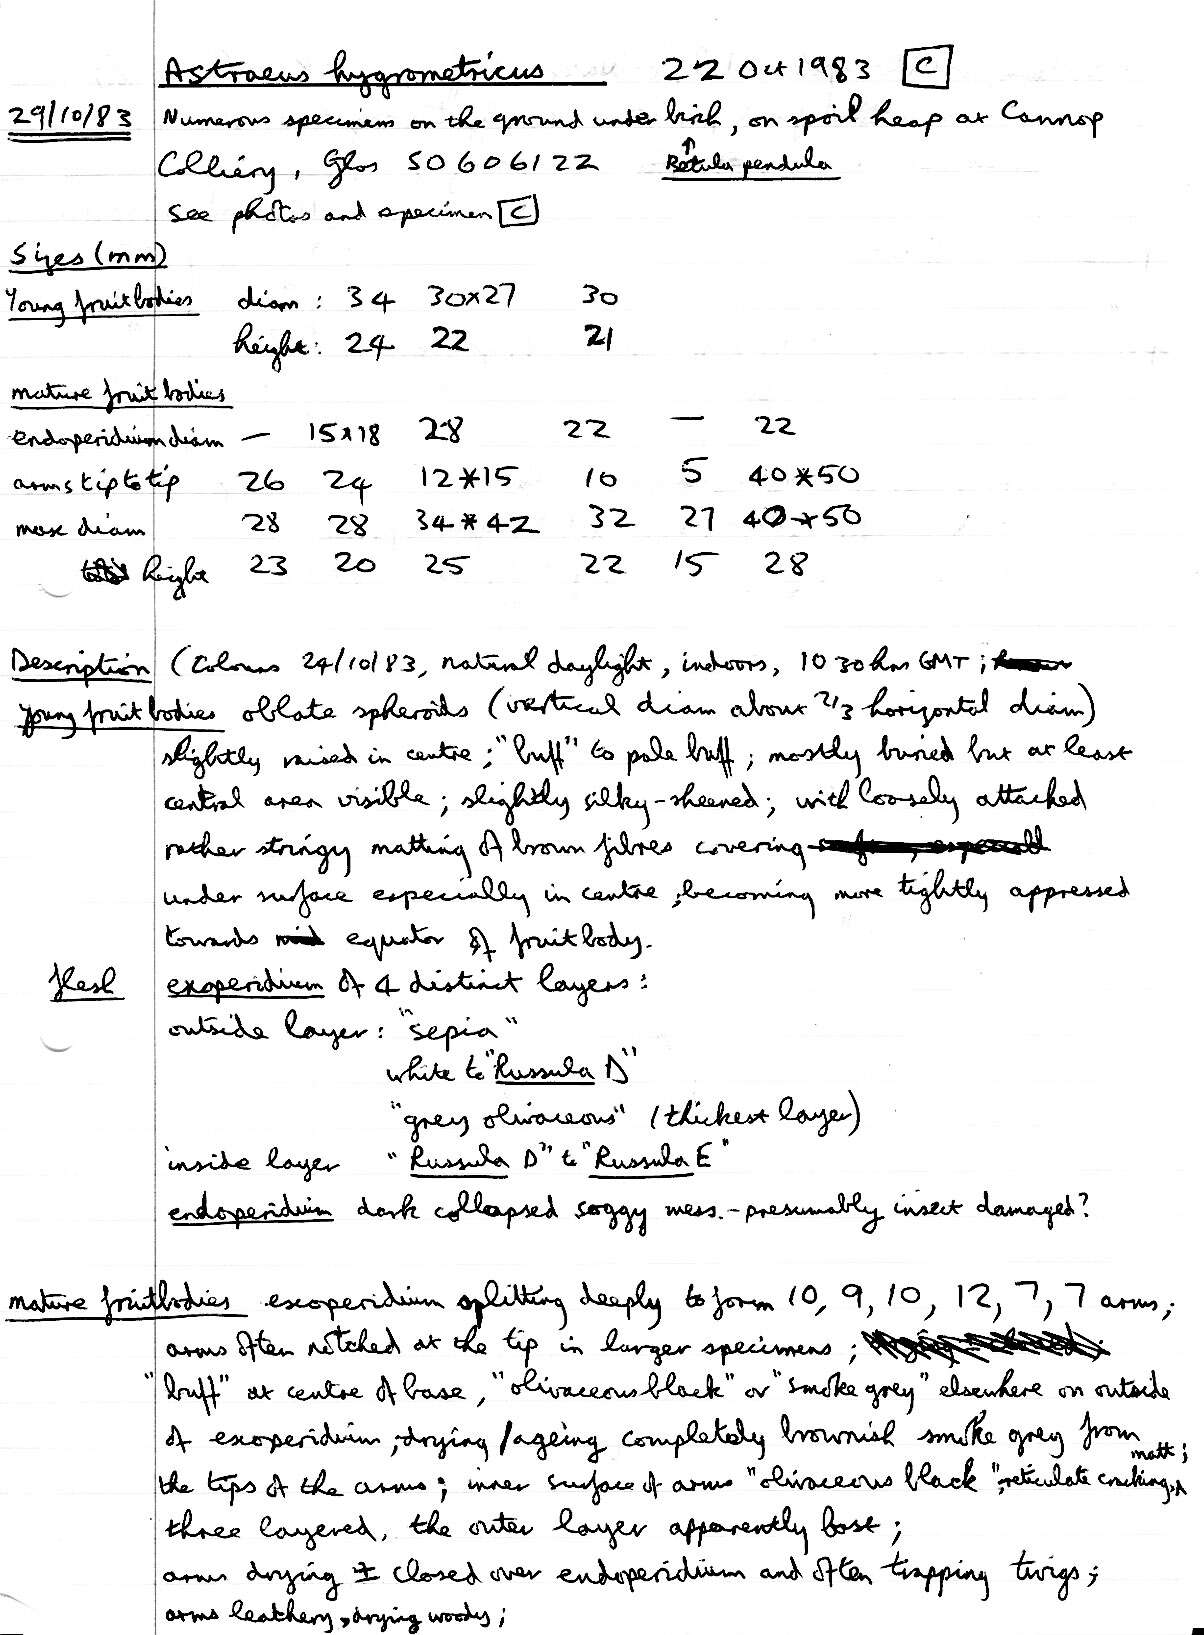 Astraeus hygrometricus 22 Oct 1983 C
29/10/83 Numerous specimens on the ground under birch, on spoil heap at Cannop
↑
Colliery, Glos SO 606122 Betula pendula
see photos and specimen C
Sizes (mm)
Young fruitbodies diam : 34 30x27 30
height: 24 22 21
mature fruit bodies
endoperidium diam — 15x18 28 22 — 22
arms tip to tip 26 24 12*15 10 5 40*50
max diam 28 28 34*42 32 27 40*50
height 23 20 25 22 15 28
Description (Colours 24/10/83, natural daylight, indoors, 1030hrs GMT;
Young fruit bodies oblate spheroids (vertical diam about 2/3 horizontal diam)
slightly raised in centre; "buff" to pale buff; mostly buried but at least
central area visible; slightly silky-sheened; with loosely attached
rather stringy matting of brown fibres covering
under surface especially in centre, becoming more tightly appressed
towards equator of fruitbody.
flesh exoperidium of 4 distinct layers:
outside layer: "sepia"
white to "Russula D"
"grey olivaceous" (thickest layer)
inside layer "Russula D" to "Russula E"
endoperidium dark collapsed soggy mess. - presumably insect damaged?
mature fruitbodies exoperidium splitting deeply to form 10, 9, 10, 12, 7, 7 arms;
arms often notched at the tip in larger specimens;
"buff" at centre of base, "olivaceous black" or "smoke grey" elsewhere on outside
of exoperidium, drying/ageing completely brownish smoke grey from
matt;
the tips of the arms; inner surface of arms "olivaceous black", reticulate cracking,
three layered, the outer layer apparently lost;
arms drying ± closed over endoperidium and often trapping twigs;
arms leathery, drying woody;